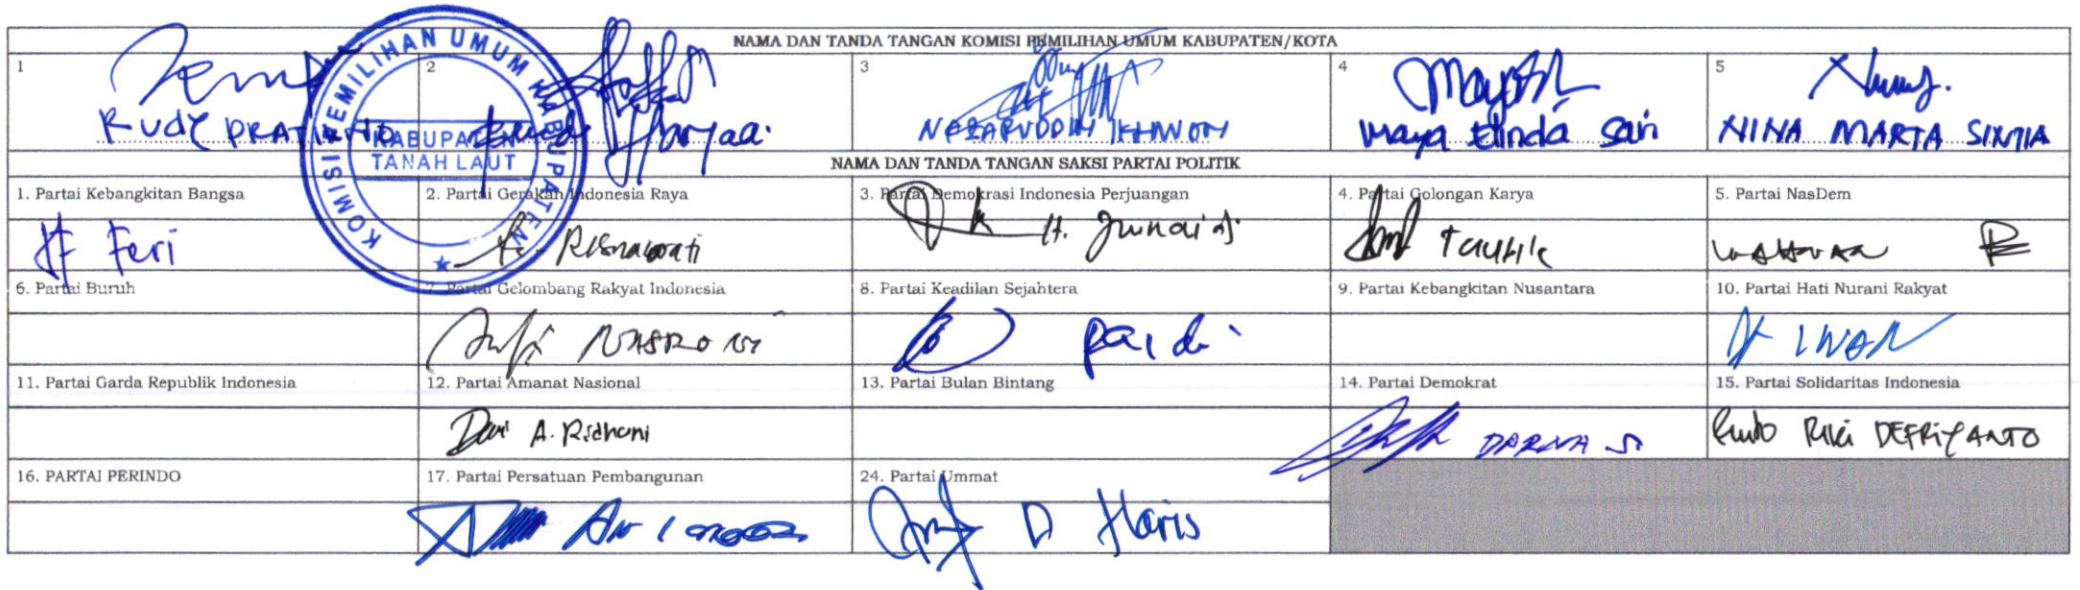 NAMA DAN TANDA TANGAN KOMISI PEMILIHAN UMUM KABUPATEN/KOTA
1 2 3 4 5
KOMISI PEMILIHAN UMUM KABUPATEN
KABUPATEN
TANAH LAUT
RUDY PRATIKNO Maya Elinda Sari NINA MARTA SINTIA
NAMA DAN TANDA TANGAN SAKSI PARTAI POLITIK
1. Partai Kebangkitan Bangsa 2. Partai Gerakan Indonesia Raya 3. Partai Demokrasi Indonesia Perjuangan 4. Partai Golongan Karya 5. Partai NasDem
Feri Risnawati H. Junaidi Taufik
6. Partai Buruh 7. Partai Gelombang Rakyat Indonesia 8. Partai Keadilan Sejahtera 9. Partai Kebangkitan Nusantara 10. Partai Hati Nurani Rakyat
Pardi IWAN
11. Partai Garda Republik Indonesia 12. Partai Amanat Nasional 13. Partai Bulan Bintang 14. Partai Demokrat 15. Partai Solidaritas Indonesia
A. Ridhani DARMA S RIKI DEFRIYANTO
16. PARTAI PERINDO 17. Partai Persatuan Pembangunan 24. Partai Ummat
D Haris